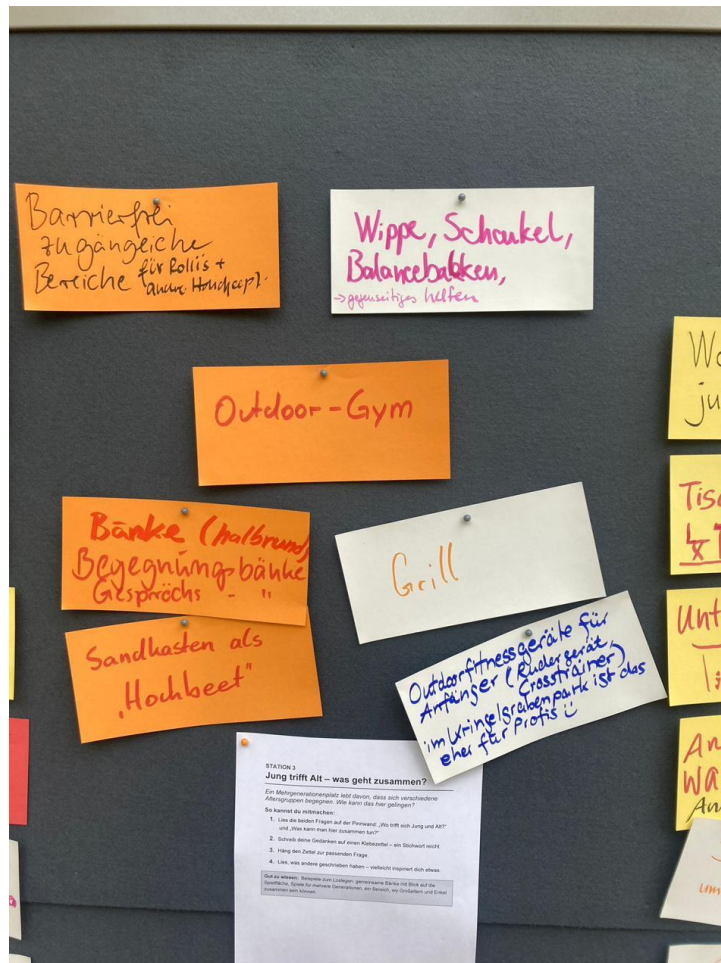 Barrierfrei
zugängeiche
Bereiche für Rolli's +
andre Handicap!
Wippe, Schaukel,
Balancebalken,
→ gegenseitiges helfen
Outdoor-Gym
Bänke (halbrund)
Begegnungsbänke
Gesprächs - "
Grill
Sandkasten als
„Hochbeet"
Outdoorfitnessgeräte für
Anfänger (Rudergerät,
Crosstrainer)
im Kringelsgrabenpark ist das
eher für Profis
STATION 3
Jung trifft Alt – was geht zusammen?
Ein Mehrgenerationenplatz lebt davon, dass sich verschiedene
Altersgruppen begegnen. Wie kann das hier gelingen?
So kannst du mitmachen:
1. Lies die beiden Fragen auf der Pinnwand: „Wo trifft sich Jung und Alt?"
und „Was kann man hier zusammen tun?"
2. Schreib deine Gedanken auf einen Klebezettel – ein Stichwort reicht.
3. Häng den Zettel zur passenden Frage.
4. Lies, was andere geschrieben haben – vielleicht inspiriert dich etwas.
Gut zu wissen: Beispiele zum Loslegen: gemeinsame Bänke mit Blick auf die
Spielfläche, Spiele für mehrere Generationen, ein Bereich, wo Großeltern und Enkel
zusammen sein können.
Wo
ju
Tis
Unt
An
wa
An
um